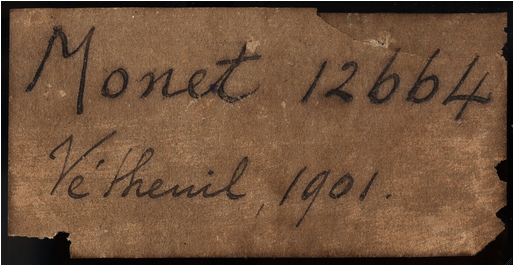 Monet 12664
Vétheuil, 1901.